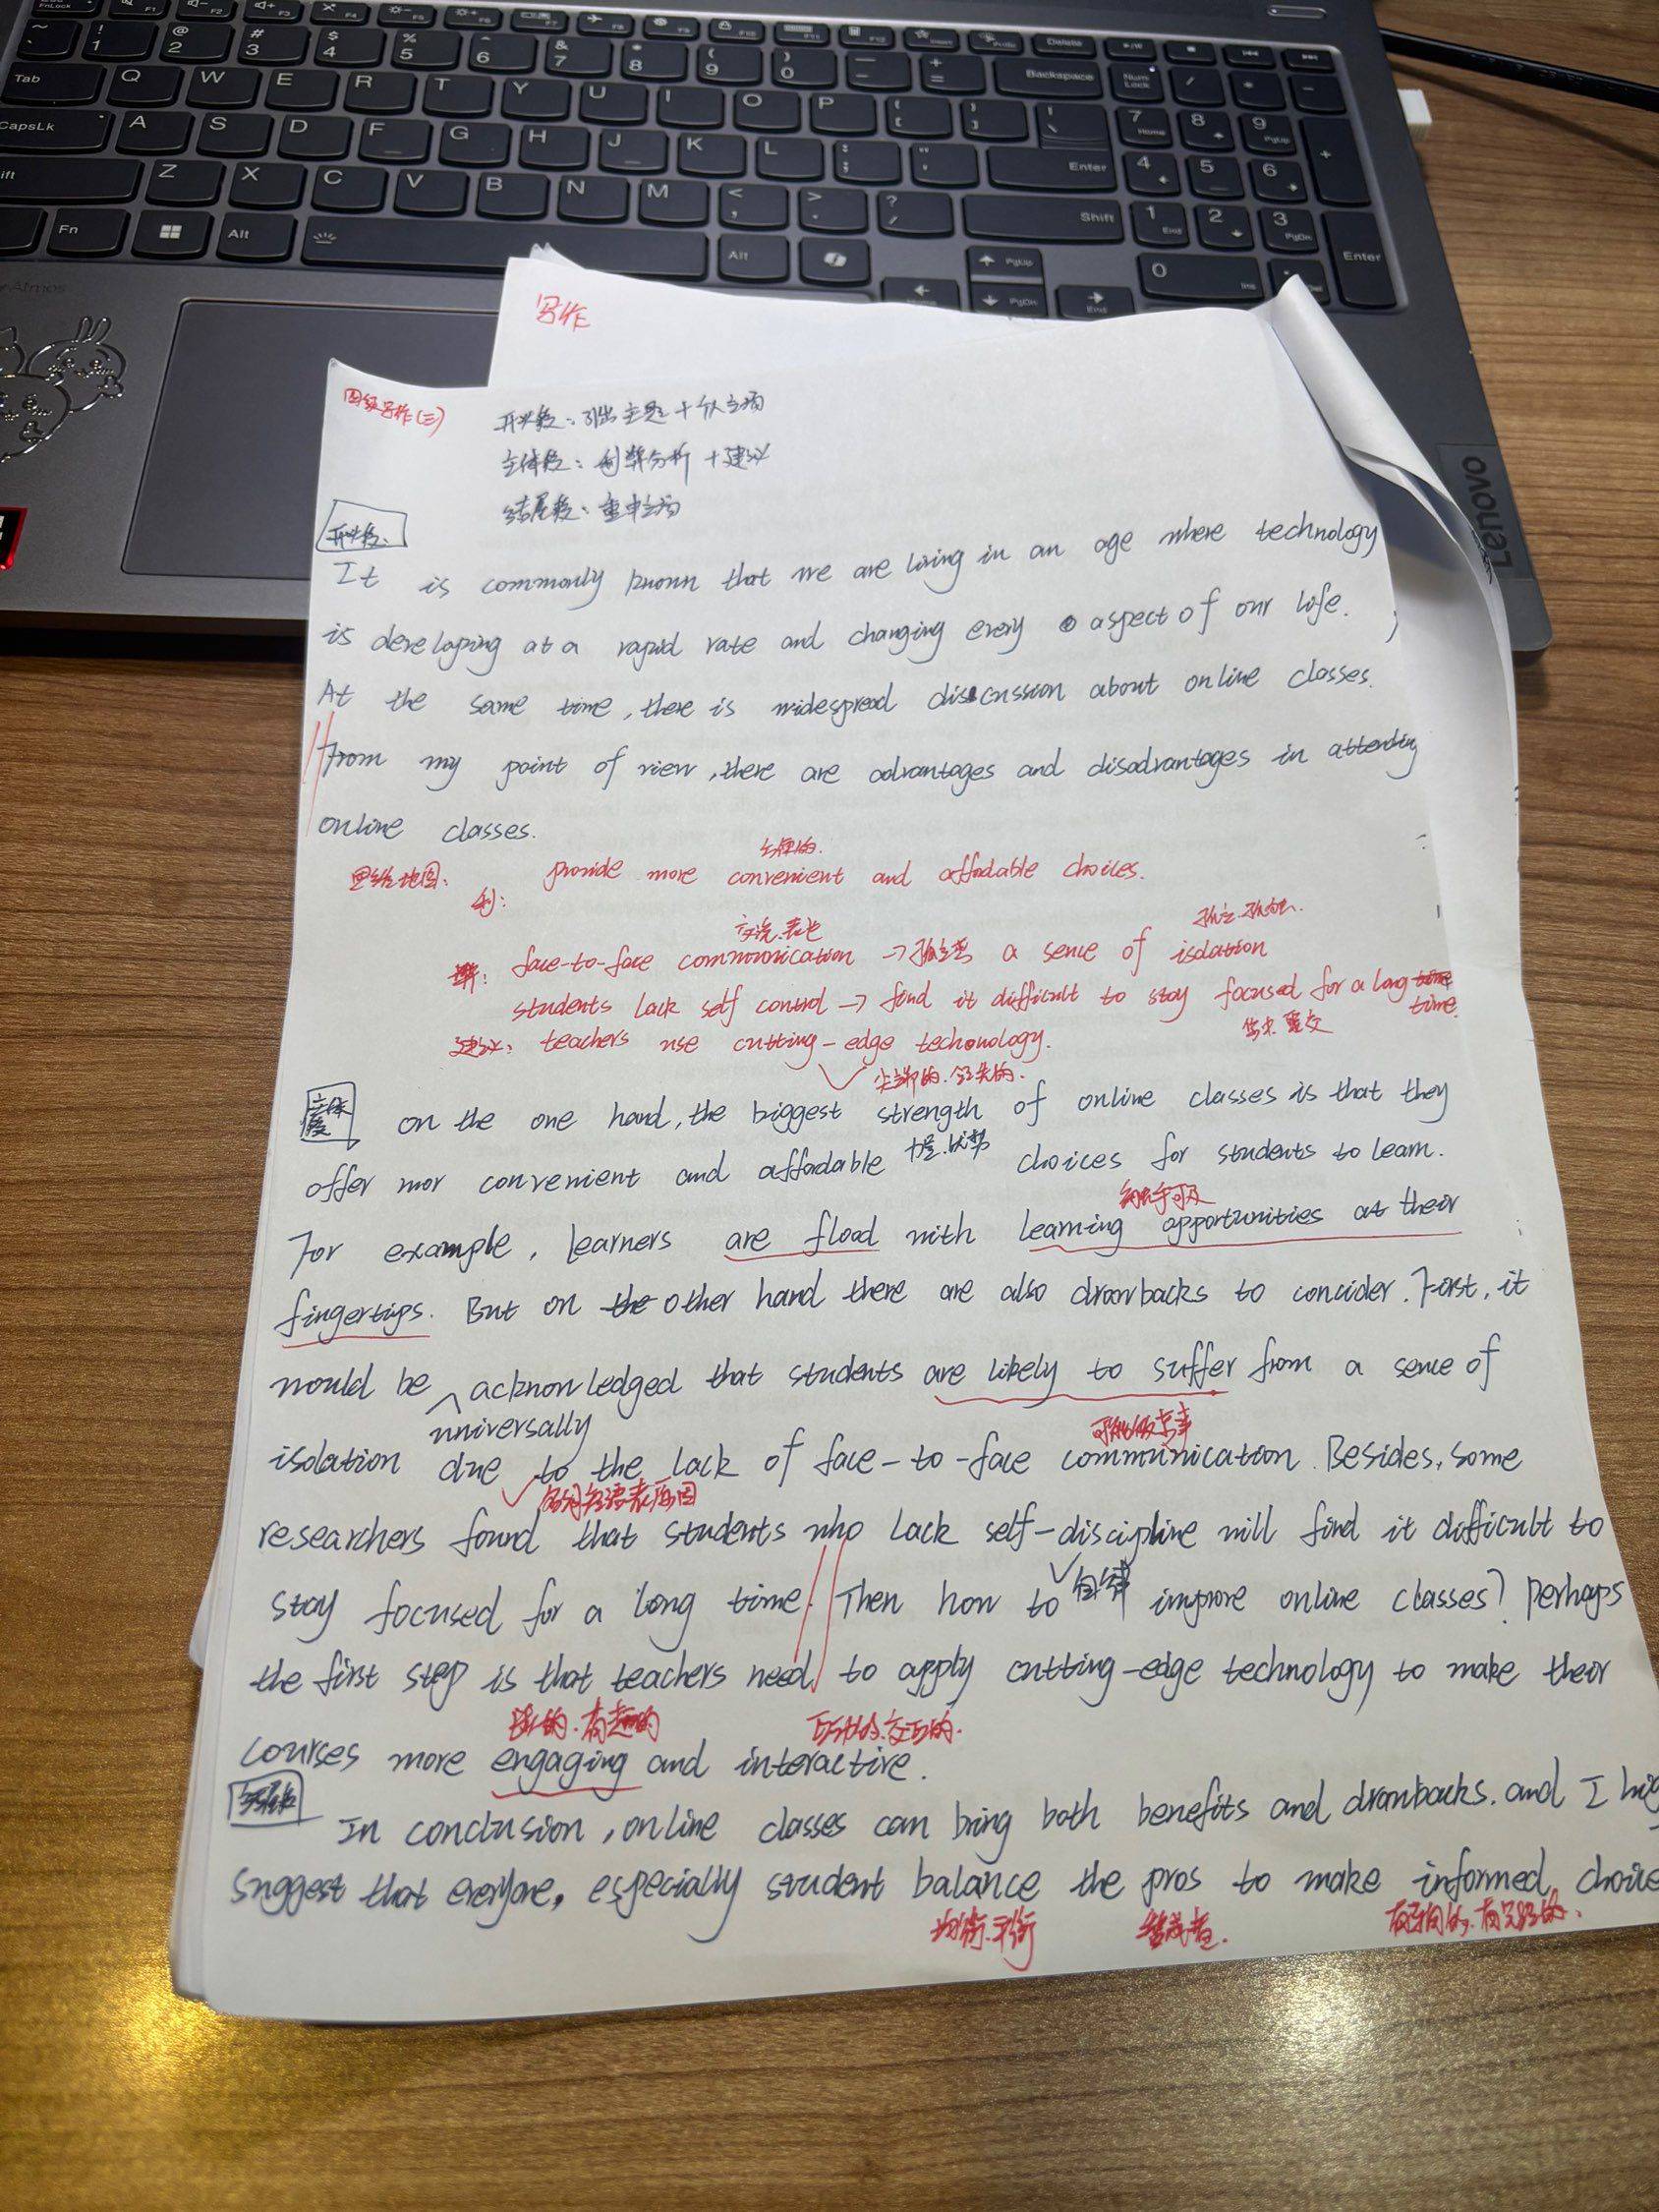 写作
四级写作(三)
开头段：引出主题+亮立场
主体段：利弊分析+建议
结尾段：重申立场
开头段：
It is commonly known that we are living in an age where technology
is developing at a rapid rate and changing every aspect of our life.
At the same time, there is widespread discussion about online classes.
From my point of view, there are advantages and disadvantages in attending
online classes.
思维地图：
利：
provide more convenient and affodable choices.
弊：face-to-face communication → a sence of isolation
students lack self control → find it difficult to stay focused for a long time
time.
建议：teachers use cutting-edge technology.
尖端的.领先的.
主体段
on the one hand, the biggest strength of online classes is that they
offer mor convenient and affodable choices for students to learn.
For example, learners are flood with learning opportunities at their
fingertips. But on the other hand there are also drawbacks to concider. First, it
would be acknowledged that students are likely to suffer from a sence of
universally
isolation due to the lack of face-to-face communication. Besides, some
名词短语表原因
researchers found that students who lack self-discipline will find it difficult to
自律
stay focused for a long time. Then how to improve online classes? perhaps
the first step is that teachers need to apply cutting-edge technology to make their
courses more engaging and interactive.
In conclusion, online classes can bring both benefits and drawbacks. and I
suggest that everyone, especially student balance the pros to make informed choice
均衡.平衡
Lenovo
Tab
CapsLk
Q W E R T Y U I O P
A S D F G H J K L
Z X C V B N M
Fn
Alt
Alt
Backspace
Enter
Shift
Enter
Num Lock
Home
PgUp
End
PgDn
Delete